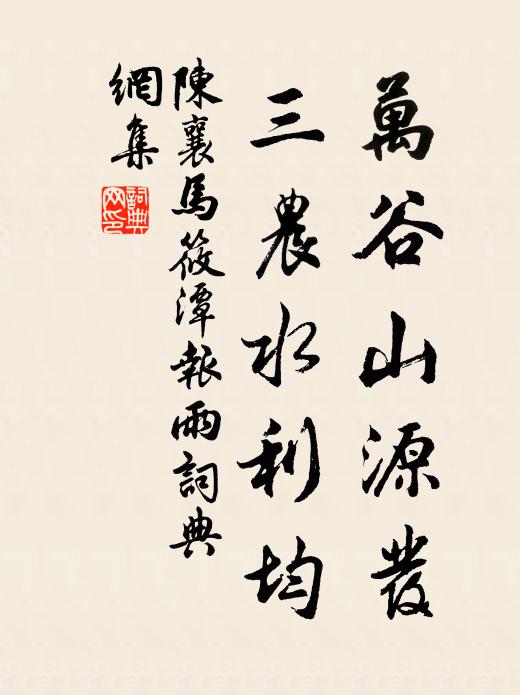 萬谷山源發
三農水利均
陳襄馬筱潭報雨詞典
網集
詞典網印